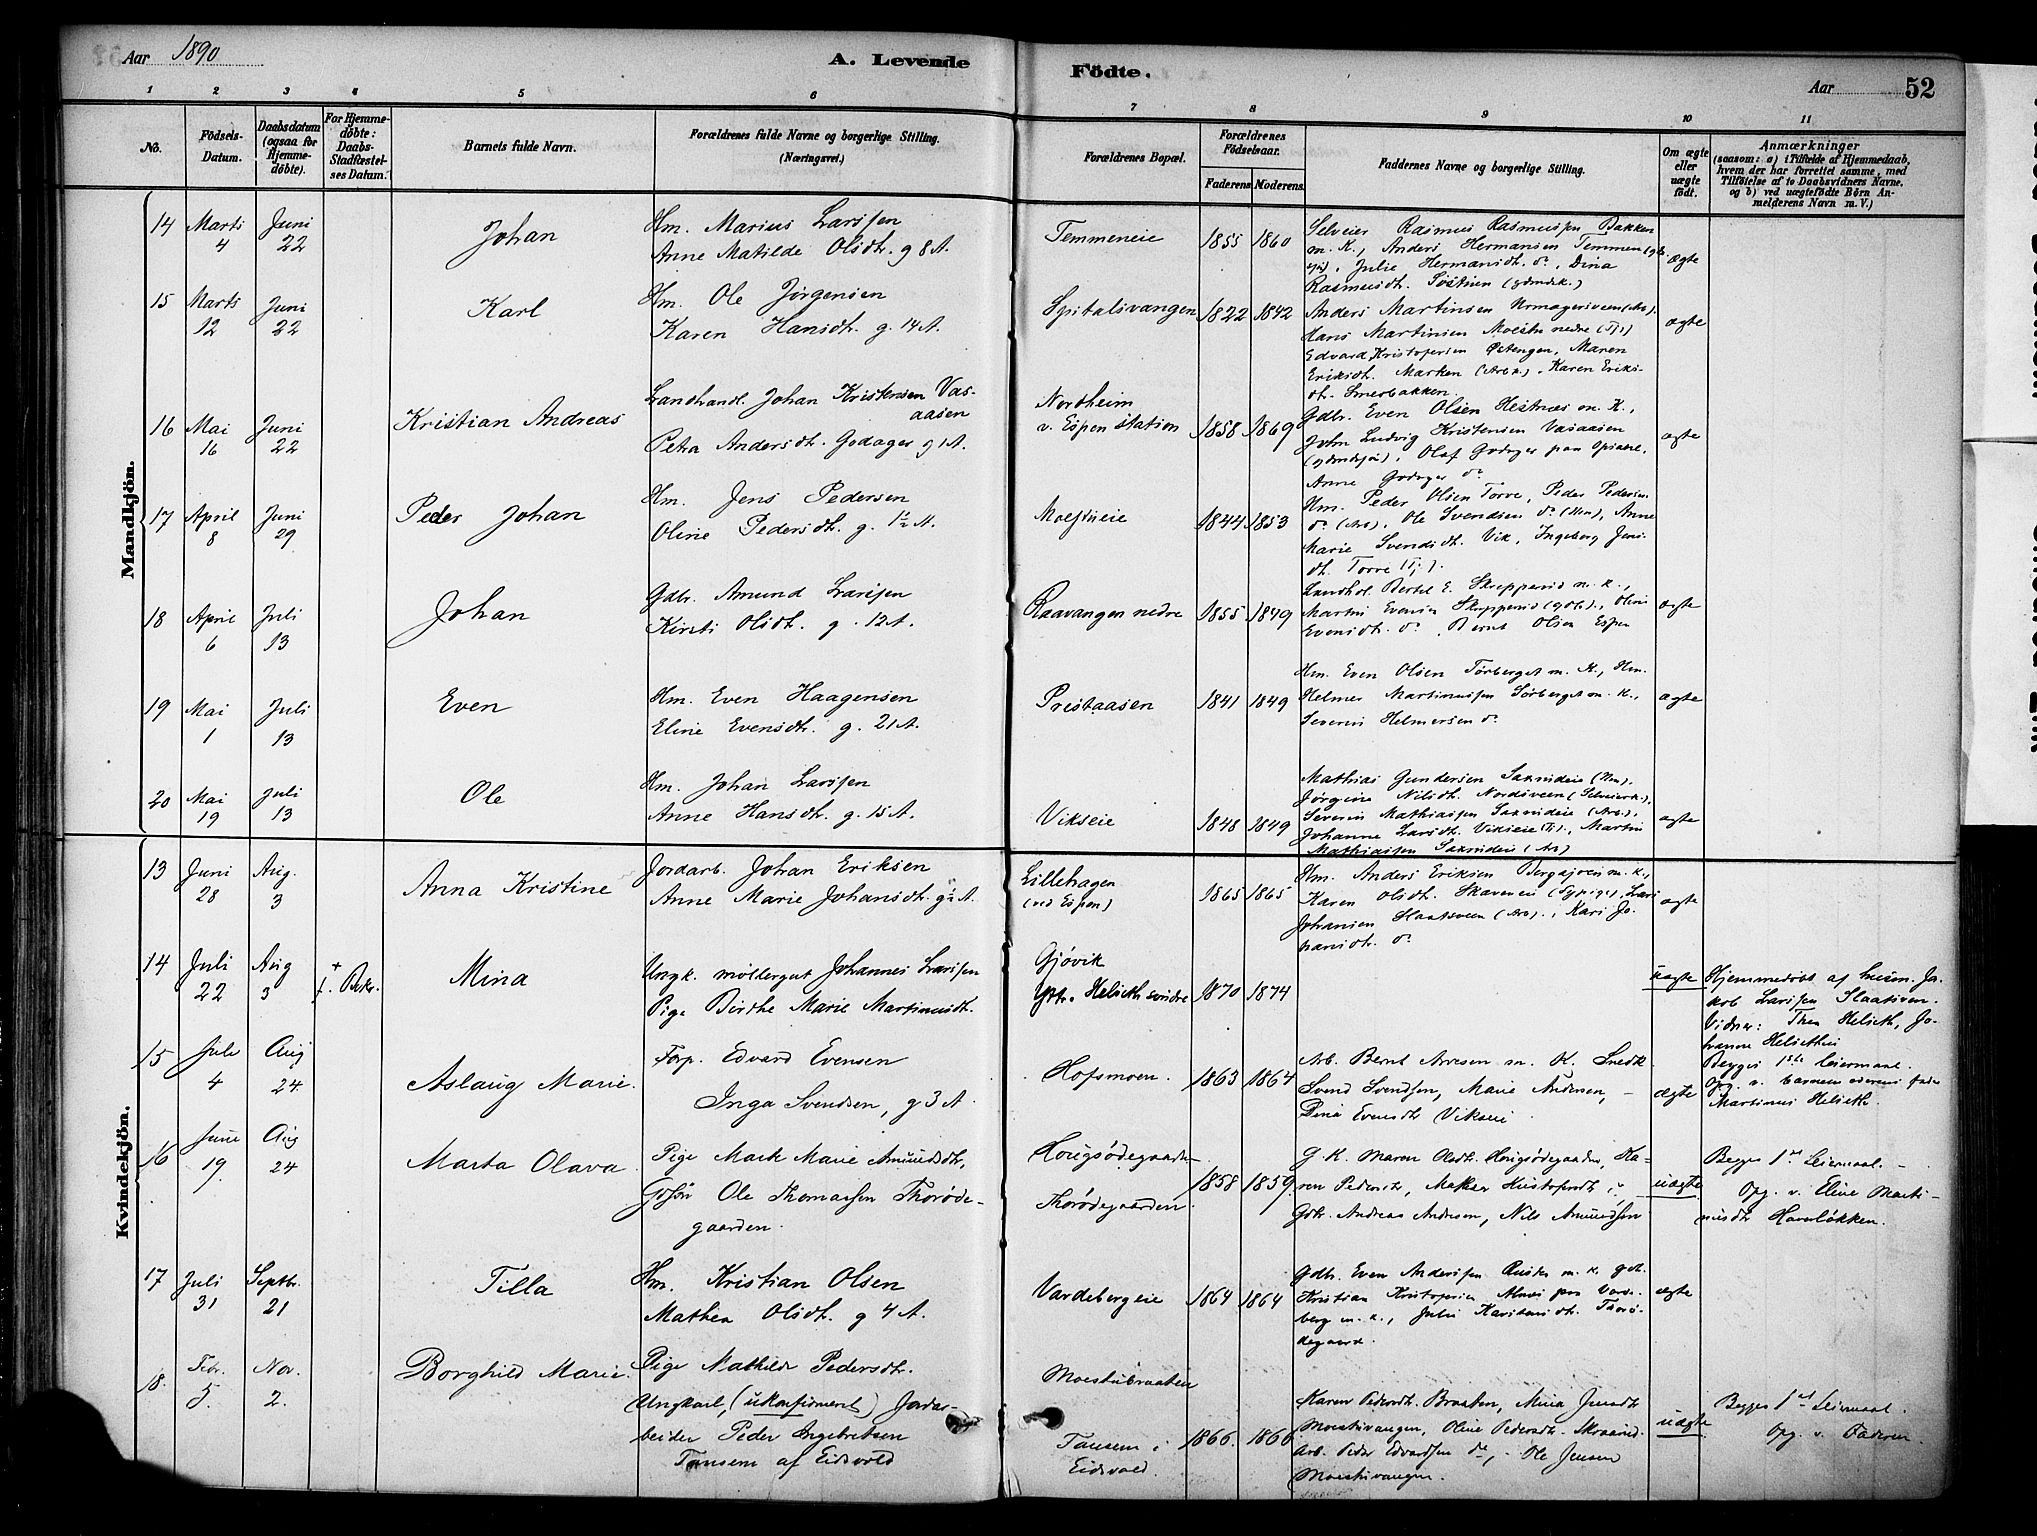 Aar 1890
A. Levende
Födte.
Aar 52
1 2 3 4 5 6 7 8 9 10 11
No.
Födsels-Datum.
Daabsdatum (ogsaa for Hjemmedöbte).
For Hjemmedöbte: Daabs-Stadfæstelses Datum.
Barnets fulde Navn.
Forældrenes fulde Navne og borgerlige Stilling. (Næringsvei.)
Forældrenes Bopæl.
Forældrenes Födselsaar.
Faderens. Moderens.
Faddernes Navne og borgerlige Stilling.
Om ægte eller uægte födt.
Anmærkninger
(saasom: a) i Tilfælde af Hjemmedaab, hvem der har forrettet samme, med Tilföielse af to Daabsvidners Navne, og b) ved uægtefödte Börn Anmelderens Navn m. V.)
Mandkjön.
14 Marts 4 Juni 22 Johan
Hm. Marius Larssen
Anne Matilde Olsdt. g 8 A.
Temmeneie 1855 1860
Selveier Rasmus Rasmussen Bakken
m. K., Anders Hermansen Temmen
Julie Hermansdt. do, Dina
Rasmusdt.
ægte
15 Marts 12 Juni 22 Karl
Hm. Ole Jörgensen
Karen Hansdt. g. 14 A.
Spitalsvangen 1822 1842
Anders Martinsen
Hans Martinsen Moestu nedre
Edvard Kristofersen Østengen, Maren
Eriksdt. Marken (Arb.k.). Karen Eriks-
dt. Smerbakken.
ægte
16 Mai 16 Juni 22 Kristian Andreas
Landhandl. Johan Kristensen Vas-
aasen
Petra Andersdt. Godager g 1 A.
Nordheim
v. Espen station 1858 1869
Gdbr. Even Olsen Hestnæs m. K.,
John Ludvig Kristensen Vasaasen
Olaf Godager
Anne Godager do
ægte
17 April 8 Juni 29 Peder Johan
Hm. Jens Pedersen
Oline Pedersdt. g. ½ A.
Moestueie 1844 1853
Hm. Peder Olsen Torve, Peder Pedersen
do (Arb), Ole Svendsen do (Hm), Anne
Marie Svendsdt. Vik, Ingeborg Jens-
dt. Torve (Tj.).
18 April 6 Juli 13 Johan
Gdbr. Amund Larssen
Kirsti Olsdt. g. 12 A.
Raavangen nedre 1855 1849
Bertel E. Skrepperud m. K.,
Martin Evensen Skrepperud
Evensdt. do, Bernt Olsen Espen
ægte
19 Mai 1 Juli 13 Even
Hm. Even Haagensen
Eline Evensdt. g. 21 A.
Prestaasen 1841 1849
Hm. Even Olsen Törberget m. K., Hm.
Helmer Martinussen Sörberget m. K.,
Severin Helmersen do
ægte
20 Mai 19 Juli 13 Ole
Hm. Johan Larssen
Anne Hansdt. g. 15 A.
Vikseie 1848 1849
Mathias Gundersen Saxrudeie (Hm).
Jörgine Nilsdt. Nordsveen
Severin Mathiassen Saxrudeie (Arb.),
Johanne Larsdt. Vikseie (Tj.), Martin
Mathiassen Saxrudeie (Arb)
ægte
Kvindekjön.
13 Juni 28 Aug. 3 Anna Kristine
Jordarb. Johan Eriksen
Anne Marie Johansdt. g ½ A.
Lillehagen
(ved Espen) 1865 1865
Hm. Anders Eriksen Bergsjöen m. K.,
Karen Olsdt. Skaveneie
Johansen Slaatsveen (Arb)., Kari Jo-
hansdt. do
ægte
14 Juli 22 Aug 3 Mina
Ungk. möllergut Johannes Larssen
Pige Birthe Marie Martinusdt.
Gjövik
Helseth söndre 1870 1874
uægte
Hjemmedöbt af Jordm. Ja-
kob Larssen Slaatsveen.
Vidner: Thea Helseth, Jo-
hanne Helseth
Begges 1ste Leiermaal.
Opg. v. barnemoderens fader
Martinus Helseth.
15 Juli 4 Aug 24 Aslaug Marie.
Forp. Edvard Evensen
Inga Svendsen, g 3 A.
Hofsmoen. 1863 1864
Arb. Bernt Arvesen m. K. Snedk.
Svend Svendsen, Marie Andersen, -
Dina Evensdt Vikseie.
ægte
16 June 19. Aug 24 Marta Olava
Pige Mart Marie Amundsdtr,
Gdsön Ole Thomassen Thoröde-
gaarden.
Hougsödegaarden
Thorödegaarden. 1858 1859.
G. K. Maren Olsdt. Hougsödegaarden, Ka-
ren Pedersdt,
Gdbr. Andreas Andresen, Nils Amundsen
uægte
Begges 1ste Leiermaal. -
Opg. v. Eline Marti-
nusdt Havnlökken.
17 Juli 31 Septbr. 21 Tilla
Hm. Kristian Olsen
Mathea Olsdt. g 4 A.
Vardebergeie 1864 1864
Gdbr. Even Anderssen Ruske m. K. Gdb.
Kristian Kristofersen Alvei paa Varde-
berg m. K., Julie Karstensdt. Thorö-
degaard.
ægte
18. Febr. 5. Nov. 2. Borghild Marie.
Pige Mathilde Pedersdtr.
Ungkarl, (ukonfirment) Jordar-
beider Peder Ingebretsen
Tansem af Eidsvold
Moestubraaten
Tansem i
Eidsvold. 1866. 1866
Karen Pedersdt. Braaten, Mina Jensdt
Moestuvangen, Oline Pedersdt. Skraarud.
Arb. Peder Edvardsen do, - Ole Jensen
Moestuvangen.
uægte
Begges 1ste Leiermaal.
Opg. v. Faderen.